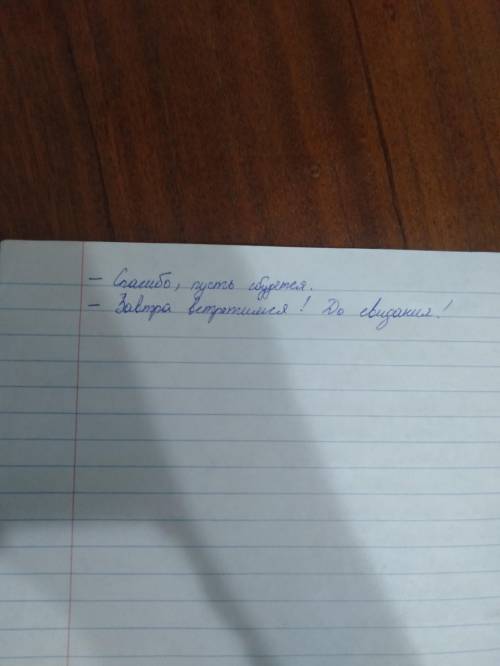 - Спасибо, пусть сбудется.
- Завтра встретимся! До свидания!